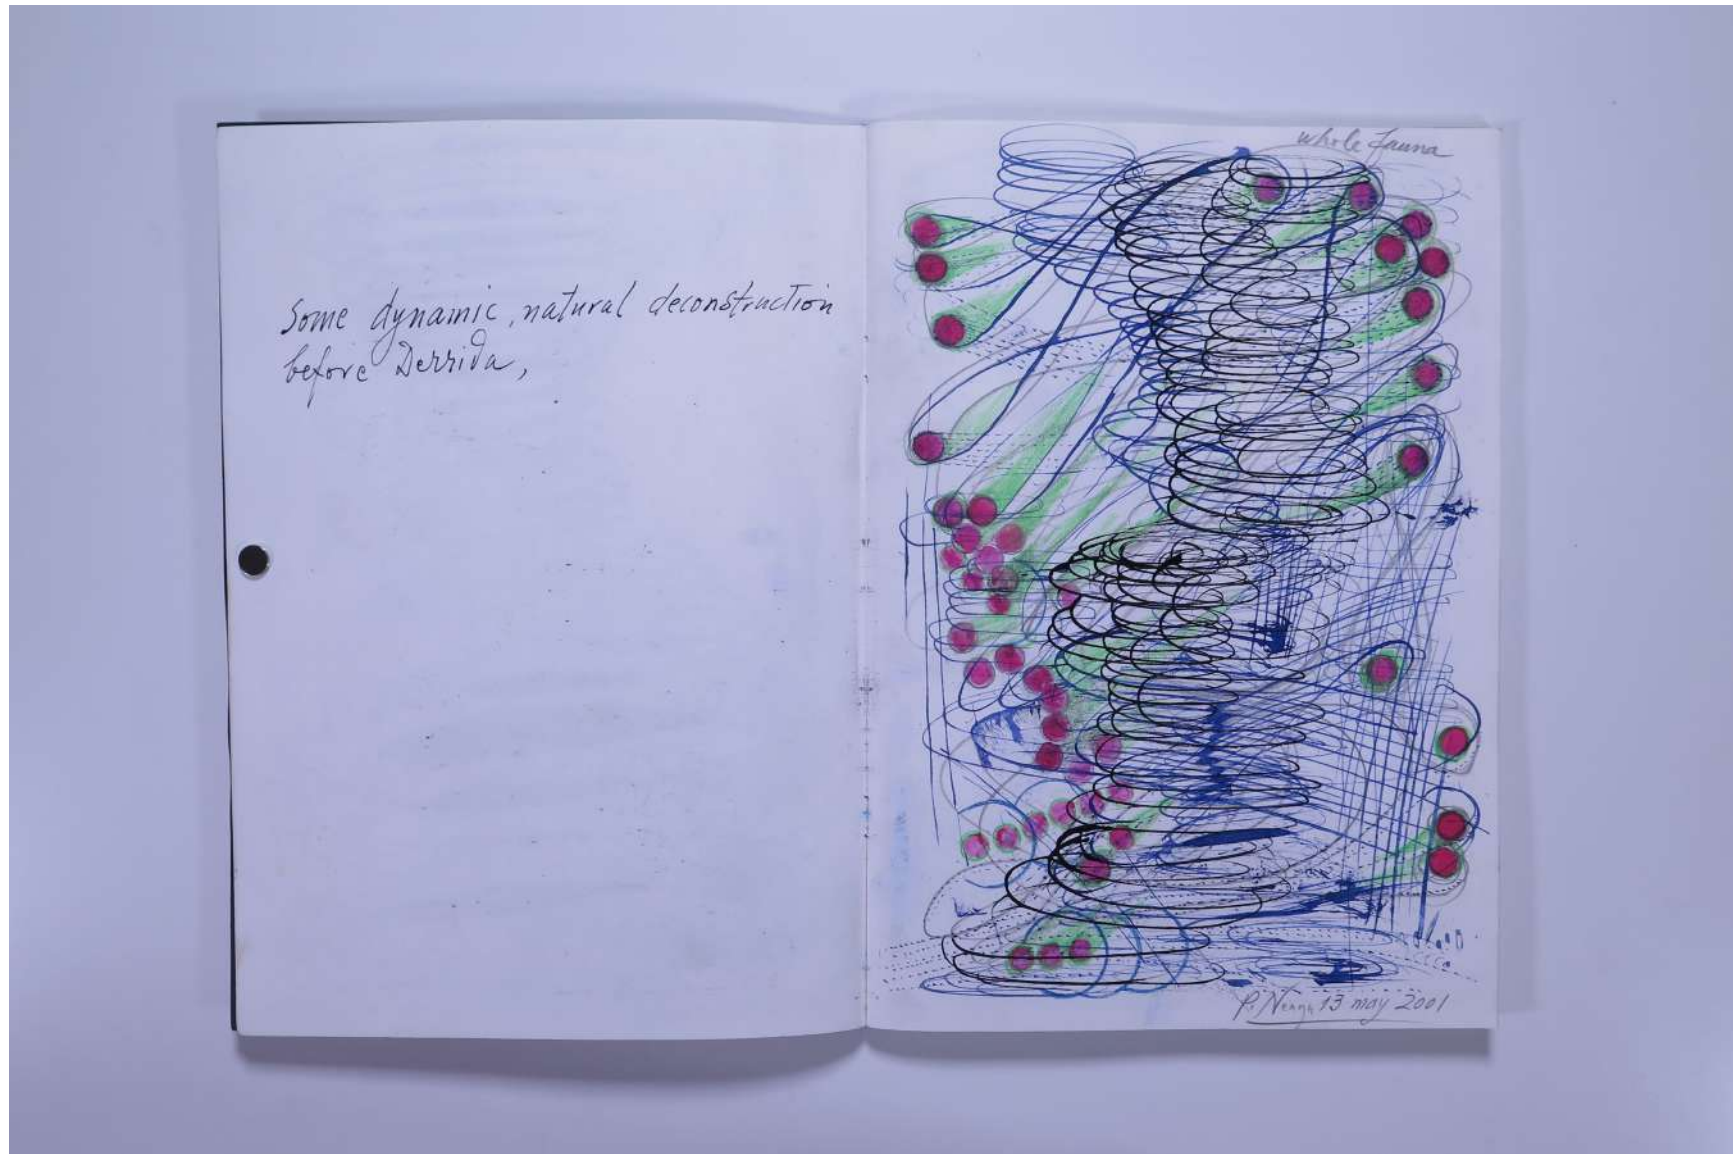 Some dynamic, natural deconstruction
before Derrida,
whole fauna
P. Neagu 13 may 2001